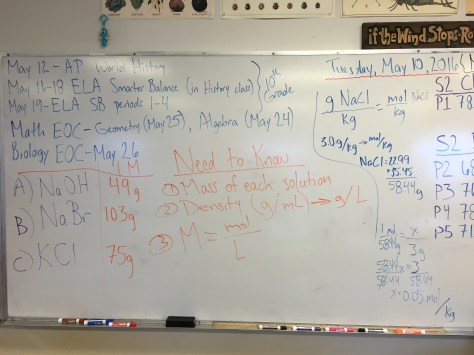 if the Wind Stops-Ro
May 12-AP World History
May 16-18 ELA Smarter Balance (in History class)
May 19-ELA SB periods 1-4
10th Grade
Math EOC-Geometry (May 25), Algebra (May 24)
Biology EOC-May 26
1 M
A) NaOH 49g
B) NaBr 103g
C) KCl 75g
Need to Know
① Mass of each solution
② Density (g/mL) → g/L
③ M = mol
L
Tuesday, May 10, 2016
g NaCl = mol NaCl
Kg Kg
3.0g/kg → mol/kg
NaCl = 22.99
+35.45
58.44g
1 mol = x
58.44g 3g
58.44x = 3
58.44 58.44
x = 0.05 mol
/Kg
S2 C
P1 78
S2
P2 68
P3 76
P4 78
P5 71